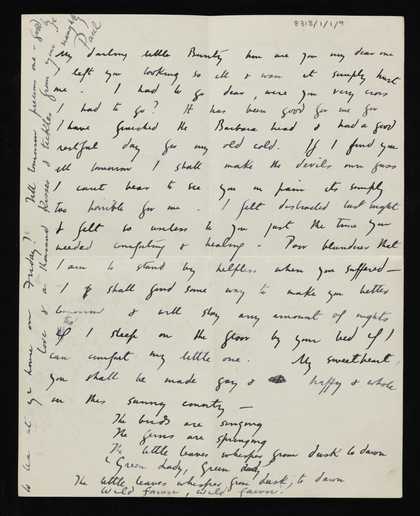 8313/1/1/9
My darling little Bunty how are you my dear one
I left you looking so ill & wan it simply hurt
me. I had to go dear, were you very cross
I had to go? It has been good for me for
I have finished the Barbara head & had a good
restful day for my old cold. If I find you
ill tomorrow I shall make the devils own fuss
I can't bear to see you in pain its simply
too horrible for me. I felt distracted last night
& felt so useless to you just the time you
needed comforting & healing. Poor blunderer that
I am to stand by helpless when you suffered —
I shall find some way to make you better
tomorrow & will stay any amount of nights
if I sleep on the floor by your bed if I
can comfort my little one. My sweetheart
you shall be made gay & happy & whole
in this sunny country —
The birds are singing
The ferns are springing
The little leaves whisper from dusk to dawn
"Green Lady, Green Lady,"
The little leaves whisper from dusk to dawn
Wild fawn, wild fawn.
to tea at home on Friday? Till tomorrow precious one - God
love & a thousand kisses & tickles from your
naughty
Paul